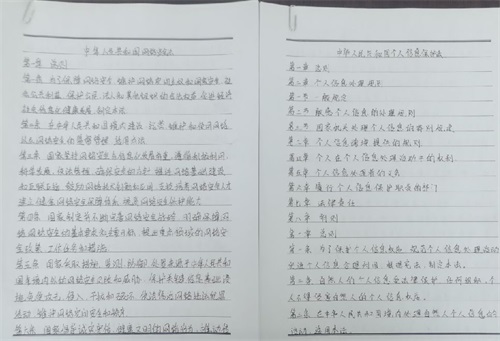 中华人民共和国网络安全法
第一章 总则
第一条 为了保障网络安全，维护网络空间主权和国家安全、社
会公共利益，保护公民、法人和其他组织的合法权益，促进经济
社会信息化健康发展，制定本法。
第二条 在中华人民共和国境内建设、运营、维护和使用网络，
以及网络安全的监督管理，适用本法。
第三条 国家坚持网络安全与信息化发展并重，遵循积极利用、
科学发展、依法管理、确保安全的方针，推进网络基础设施建设
和互联互通，鼓励网络技术创新和应用，支持培养网络安全人才，
建立健全网络安全保障体系，提高网络安全保护能力。
第四条 国家制定并不断完善网络安全战略，明确保障网
络安全的基本要求和主要目标，提出重点领域的网络安
全政策、工作任务和措施。
第五条 国家采取措施，监测、防御、处置来源于中华人民共和
国境内外的网络安全风险和威胁，保护关键信息基础设
施免受攻击、侵入、干扰和破坏，依法惩治网络违法犯罪
活动，维护网络空间安全和秩序。
第六条 国家倡导诚实守信、健康文明的网络行为，推动
中华人民共和国个人信息保护法
第一章 总则
第二章 个人信息处理规则
第一节 一般规定
第二节 敏感个人信息的处理规则
第三节 国家机关处理个人信息的特别规定
第三章 个人信息跨境提供的规则
第四章 个人在个人信息处理活动中的权利
第五章 个人信息处理者的义务
第六章 履行个人信息保护职责的部门
第七章 法律责任
第八章 附则
第一章 总则
第一条 为了保护个人信息权益，规范个人信息处理活动，
促进个人信息合理利用，根据宪法，制定本法。
第二条 自然人的个人信息受法律保护，任何组织、个
人不得侵害自然人的个人信息权益。
第三条 在中华人民共和国境内处理自然人个人信息的
活动，适用本法。